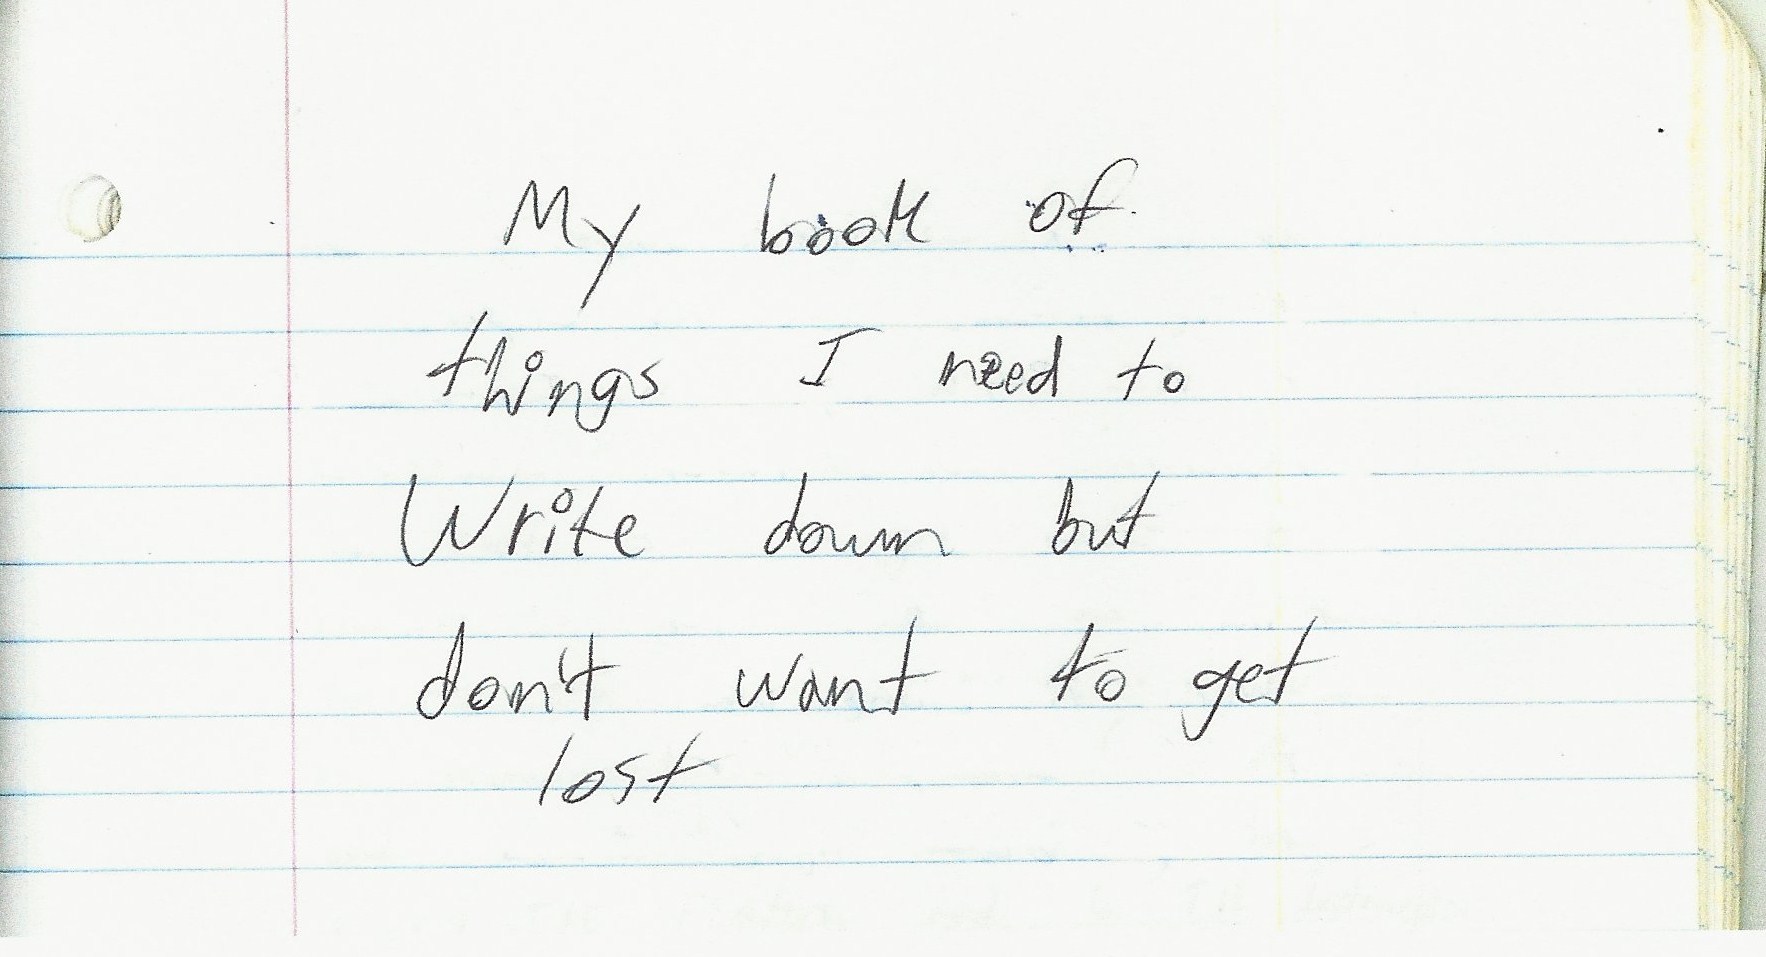 My book of
things I need to
Write down but
don't want to get
lost